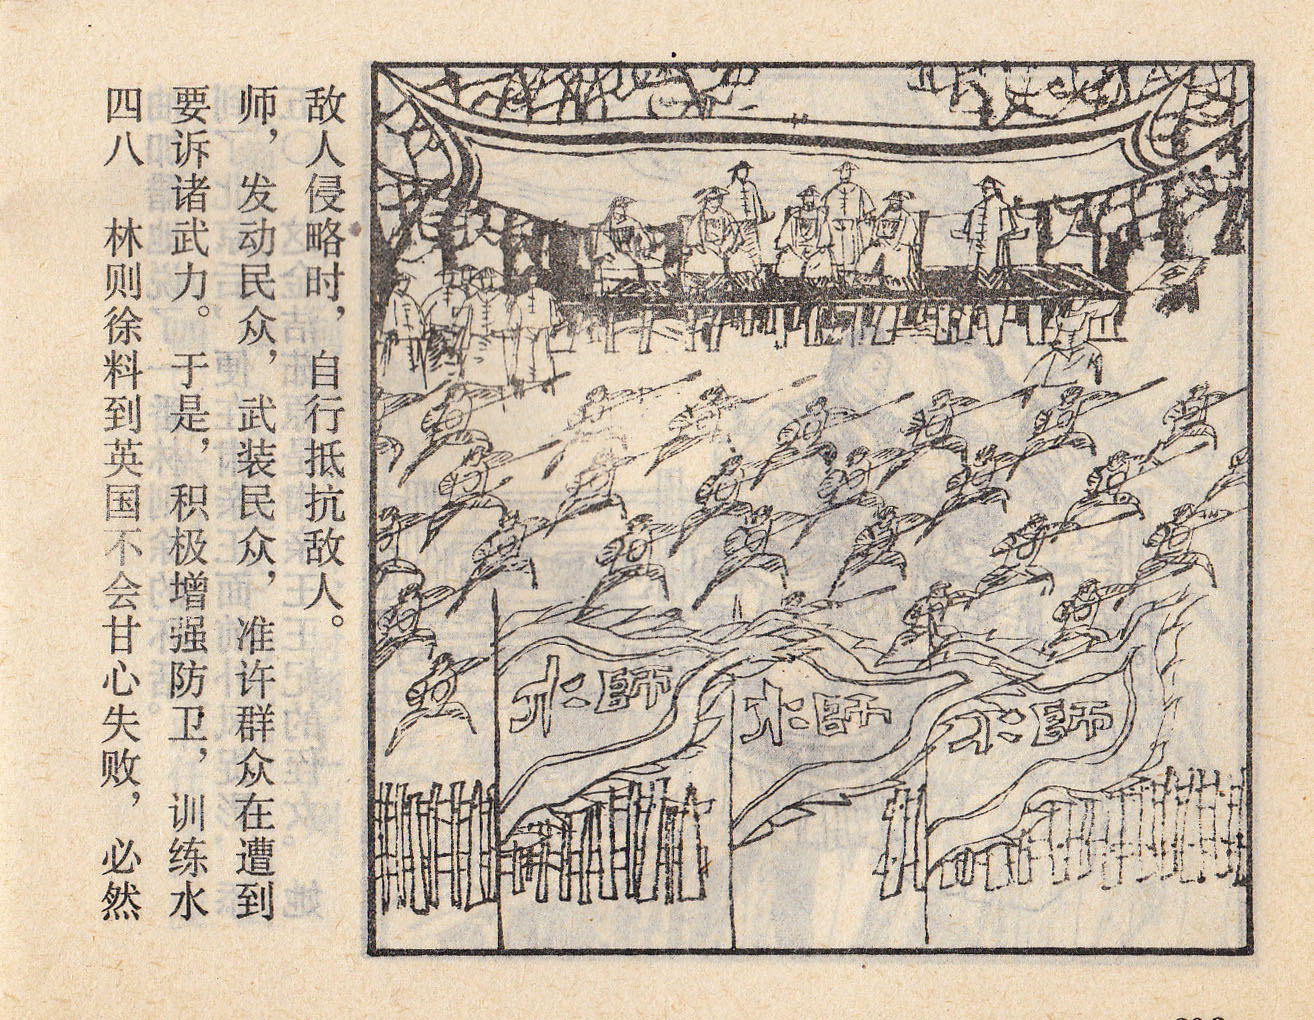 四八 林则徐料到英国不会甘心失败，必然
要诉诸武力。于是，积极增强防卫，训练水
师，发动民众，武装民众，准许群众在遭到
敌人侵略时，自行抵抗敌人。
水師
水師
水師